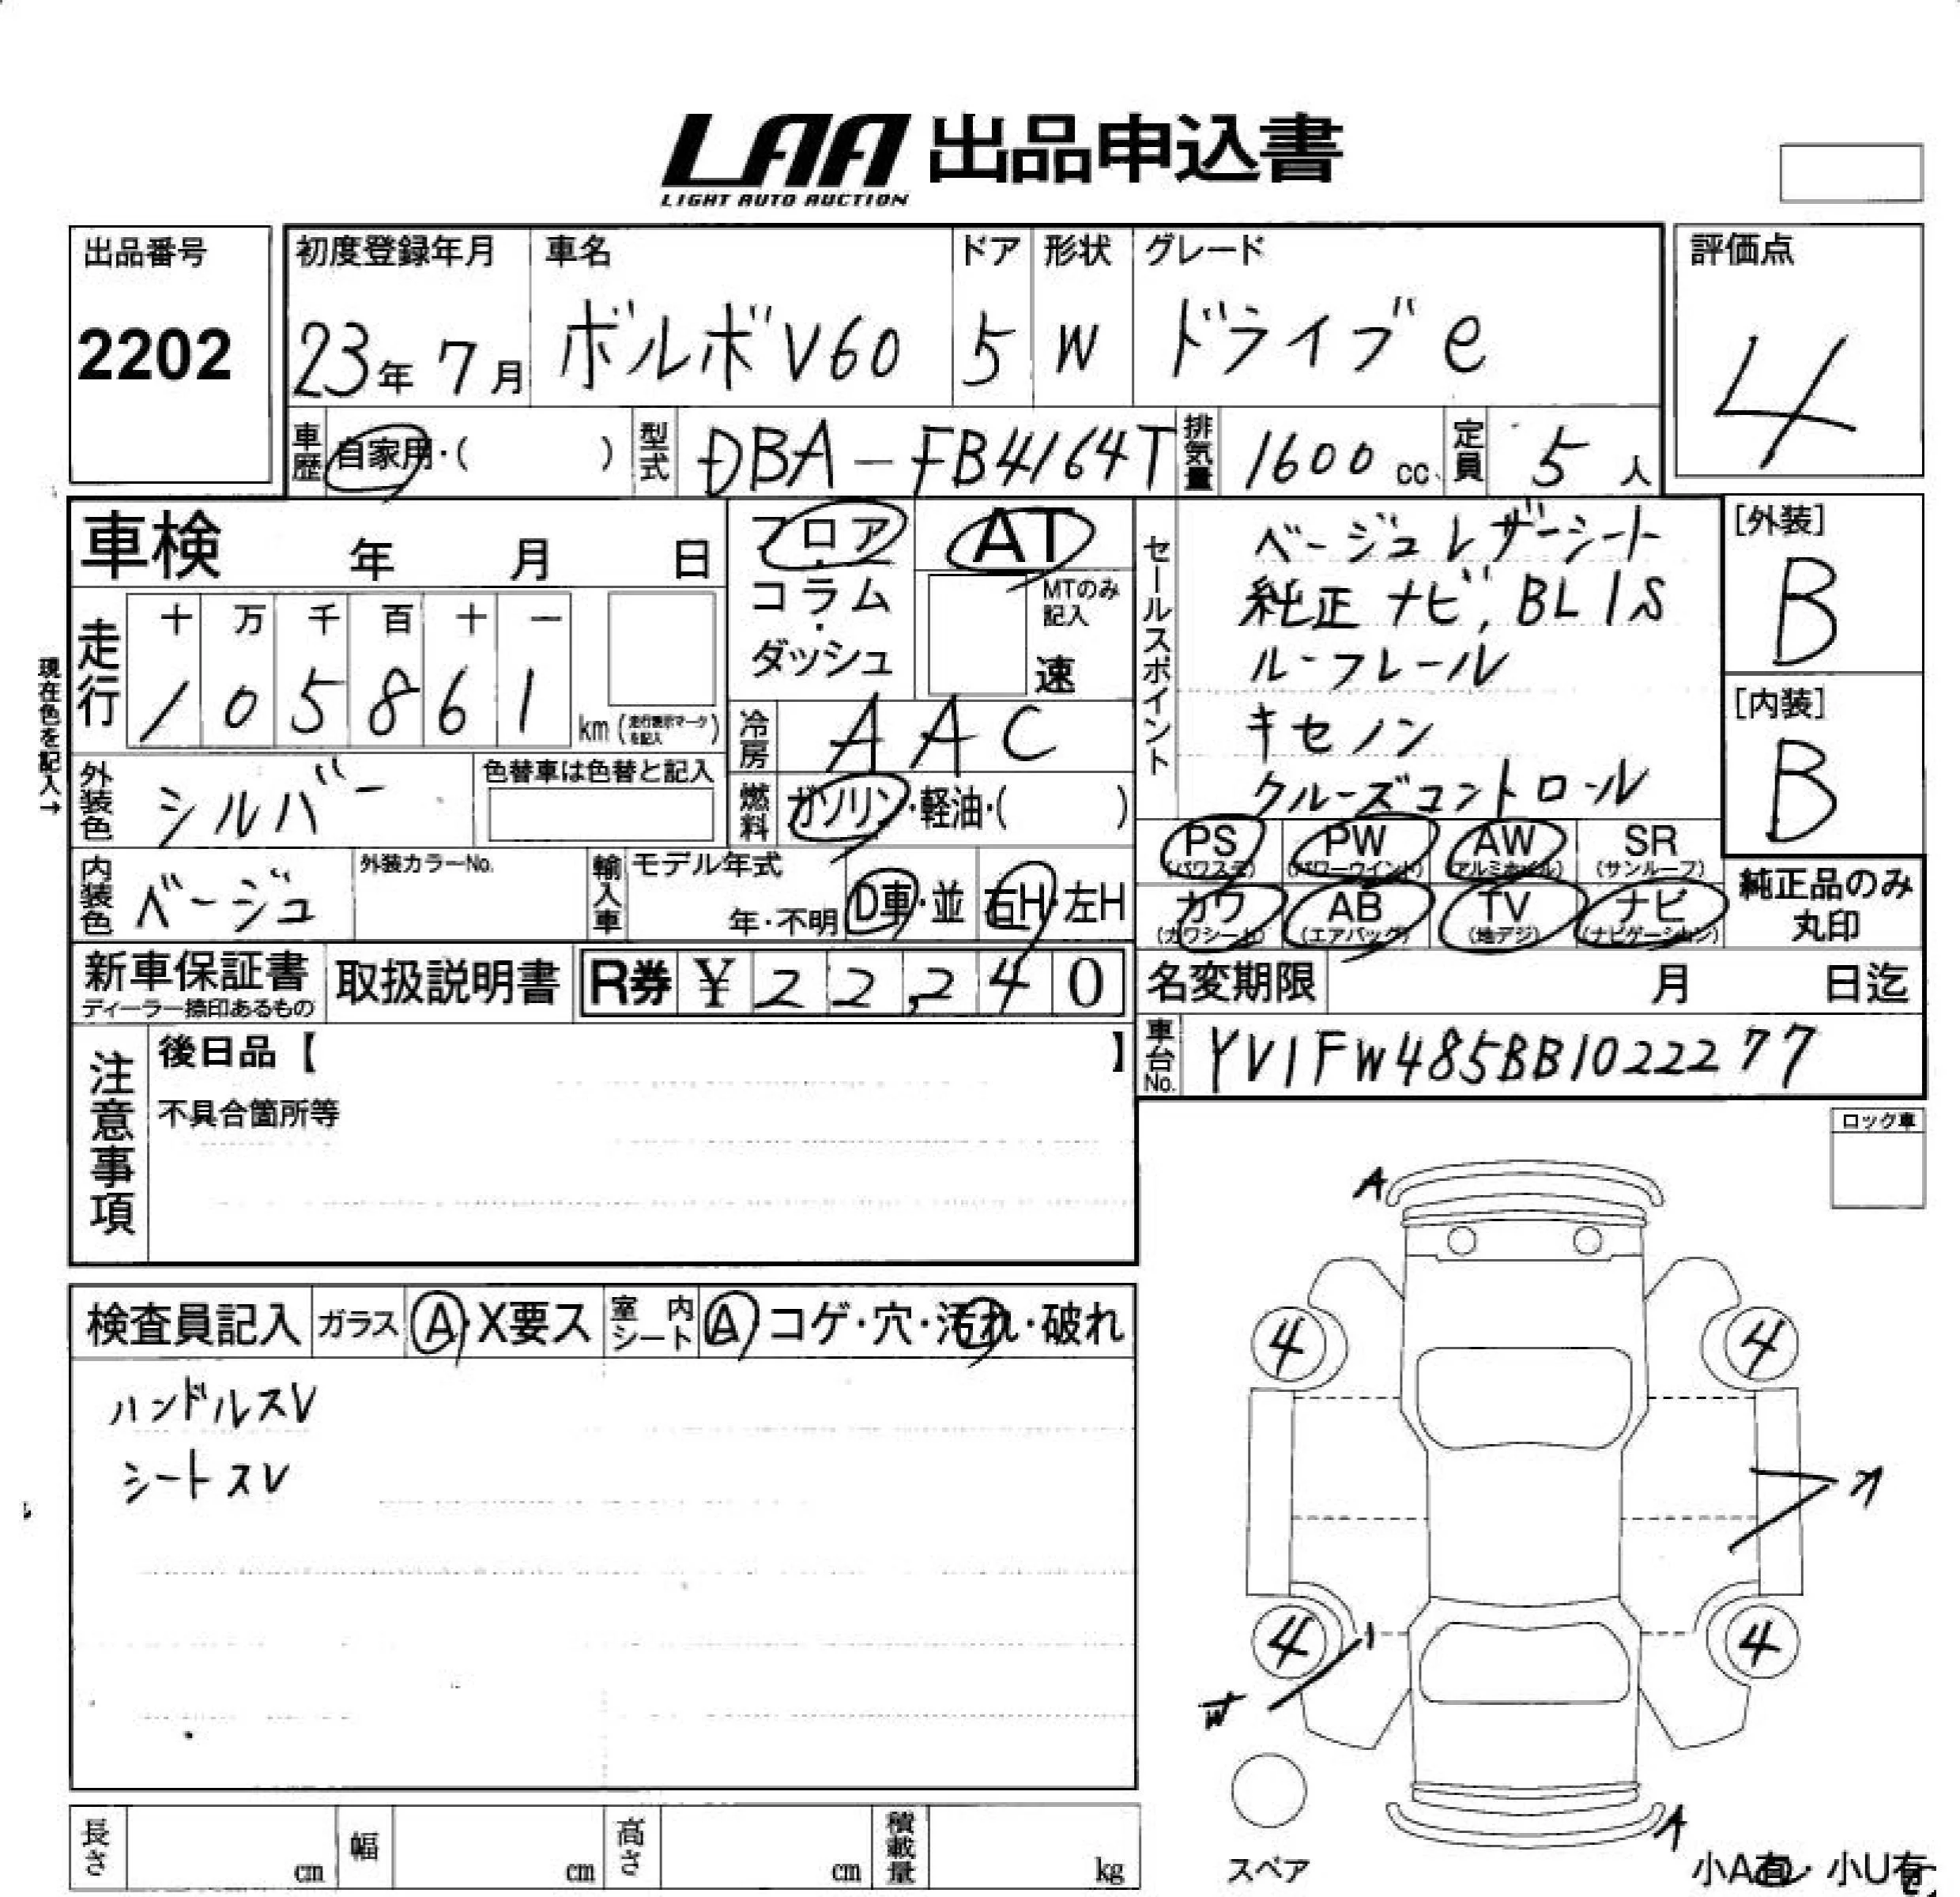 LAA 出品申込書
LIGHT AUTO AUCTION
出品番号
2202
初度登録年月
23年 7月
車名
ボルボV60
ドア
5
形状
W
グレード
ドライブe
評価点
4
車歴
自家用・( )
型式
DBA-FB4164T
排気量
1600 cc
定員
5 人
車検 年 月 日
フロア
・
コラム
・
ダッシュ
AT
MTのみ
記入
速
セールスポイント
ベージュレザーシート
純正ナビ, BLIS
ルーフレール
キセノン
クルーズコントロール
[外装]
B
[内装]
B
現在色を記入→
走行
十 万 千 百 十 一
1 0 5 8 6 1
km (走行表示マークを記入)
冷房
AAC
外装色
シルバー
色替車は色替と記入
燃料
ガソリン・軽油・( )
PS
(パワステ)
PW
(パワーウインド)
AW
(アルミホイル)
SR
(サンルーフ)
内装色
ベージュ
外装カラーNo.
輸入車
モデル年式
年・不明
D車・並
右H・左H
カワ
(カワシート)
AB
(エアバッグ)
TV
(地デジ)
ナビ
(ナビゲーション)
純正品のみ
丸印
新車保証書
ディーラー捺印あるもの
取扱説明書
R券 ¥ 22,240
名変期限 月 日迄
車台No.
YV1FW485BB1022277
注意事項
後日品【 】
不具合箇所等
ロック車
検査員記入
ガラス
A・X要ス
室内シート
A コゲ・穴・汚れ・破れ
ハンドルスレ
シートスレ
A
4
4
4
4
A
スペア
小A有・小U有
長さ cm
幅 cm
高さ cm
積載量 kg